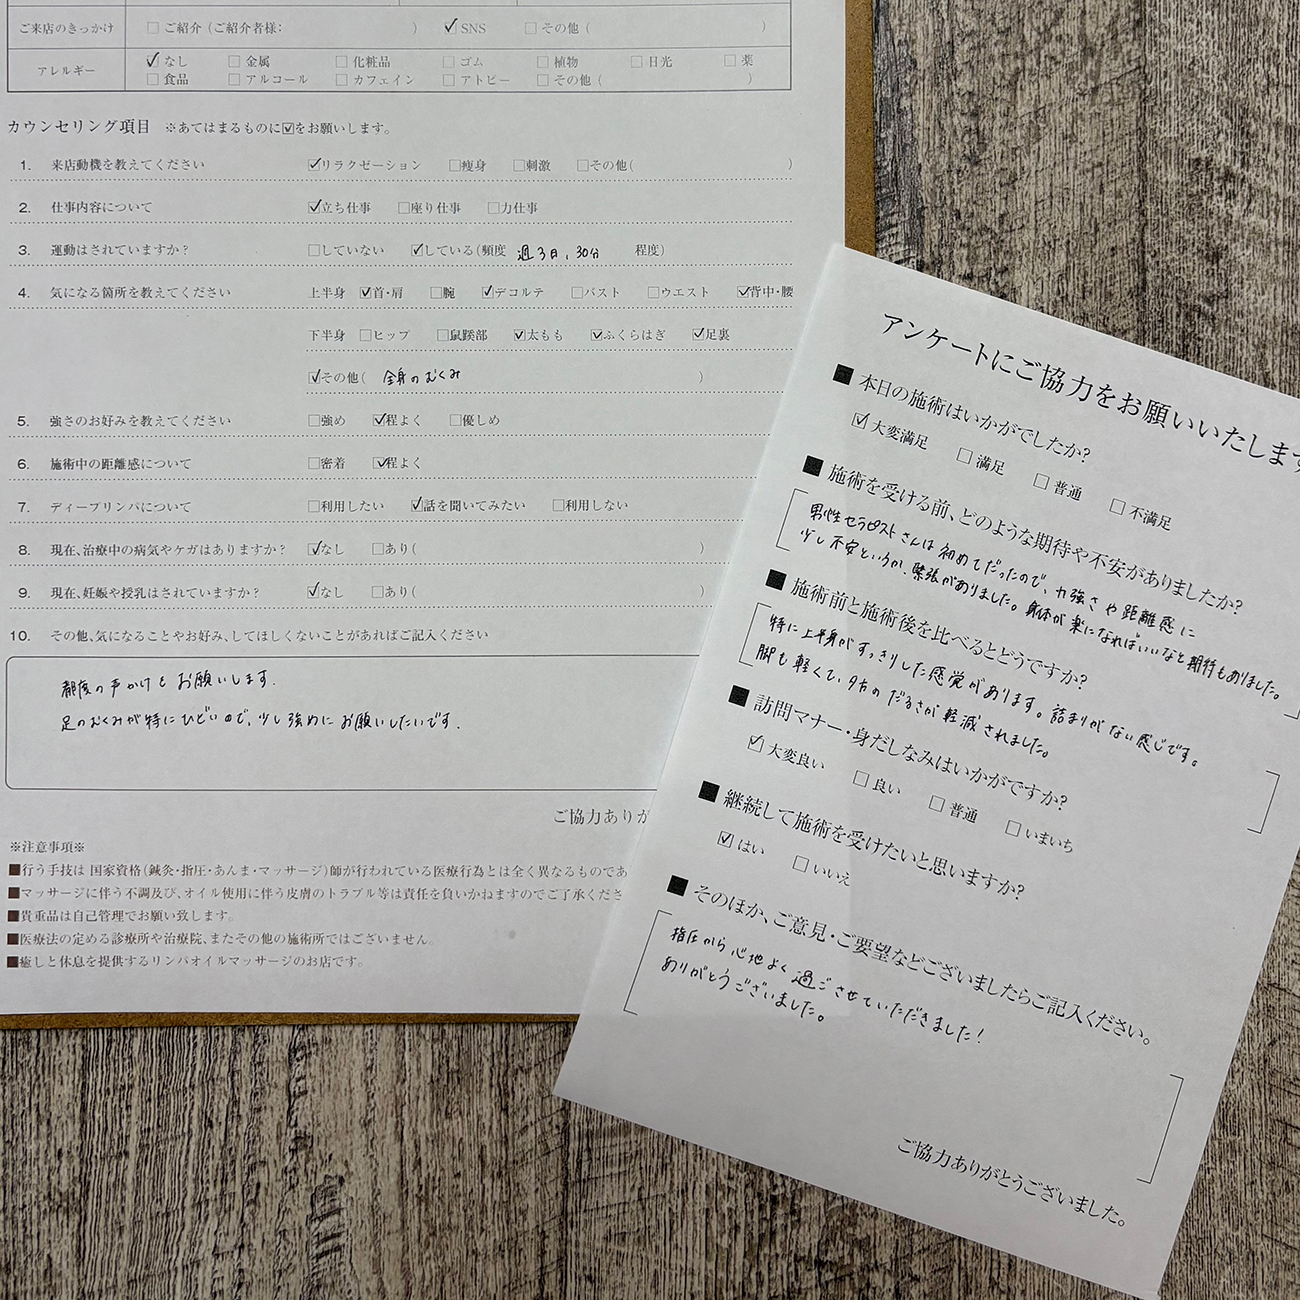 ご来店のきっかけ □ご紹介（ご紹介者様: ） ☑SNS □その他（ ）
アレルギー ☑なし □金属 □化粧品 □ゴム □植物 □日光 □薬
□食品 □アルコール □カフェイン □アトピー □その他（ ）
カウンセリング項目 ※あてはまるものに☑をお願いします。
1. 来店動機を教えてください ☑リラクゼーション □痩身 □刺激 □その他( )
2. 仕事内容について ☑立ち仕事 □座り仕事 □力仕事
3. 運動はされていますか? □していない ☑している(頻度 週3日、30分 程度)
4. 気になる箇所を教えてください 上半身 ☑首・肩 □腕 ☑デコルテ □バスト □ウエスト ☑背中・腰
下半身 □ヒップ □鼠蹊部 ☑太もも ☑ふくらはぎ ☑足裏
☑その他( 全身のむくみ )
5. 強さのお好みを教えてください □強め ☑程よく □優しめ
6. 施術中の距離感について □密着 ☑程よく
7. ディープリンパについて □利用したい ☑話を聞いてみたい □利用しない
8. 現在、治療中の病気やケガはありますか? ☑なし □あり( )
9. 現在、妊娠や授乳はされていますか? ☑なし □あり( )
10. その他、気になることやお好み、してほしくないことがあればご記入ください
都度の声かけをお願いします.
足のむくみが特にひどいので、少し強めにお願いしたいです.
ご協力ありが
※注意事項※
■行う手技は 国家資格(鍼灸・指圧・あんま・マッサージ)師が行われている医療行為とは全く異なるものであ
■マッサージに伴う不調及び、オイル使用に伴う皮膚のトラブル等は責任を負いかねますのでご了承くださ
■貴重品は自己管理でお願い致します。
■医療法の定める診療所や治療院、またその他の施術所ではございません。
■癒しと休息を提供するリンパオイルマッサージのお店です。
アンケートにご協力をお願いいたします
■本日の施術はいかがでしたか?
☑大変満足 □満足 □普通 □不満足
■施術を受ける前、どのような期待や不安がありましたか?
男性セラピストさんは初めてだったので、力強さや距離感に
少し不安というか、緊張がありました。身体が楽になればいいなと期待もありました。
■施術前と施術後を比べるとどうですか?
特に上半身がすっきりした感覚があります。詰まりがない感じです。
脚も軽くて、夕方のだるさが軽減されました。
■訪問マナー・身だしなみはいかがですか?
☑大変良い □良い □普通 □いまいち
■継続して施術を受けたいと思いますか?
☑はい □いいえ
■そのほか、ご意見・ご要望などございましたらご記入ください。
指圧から心地よく過ごさせていただきました!
ありがとうございました。
ご協力ありがとうございました。